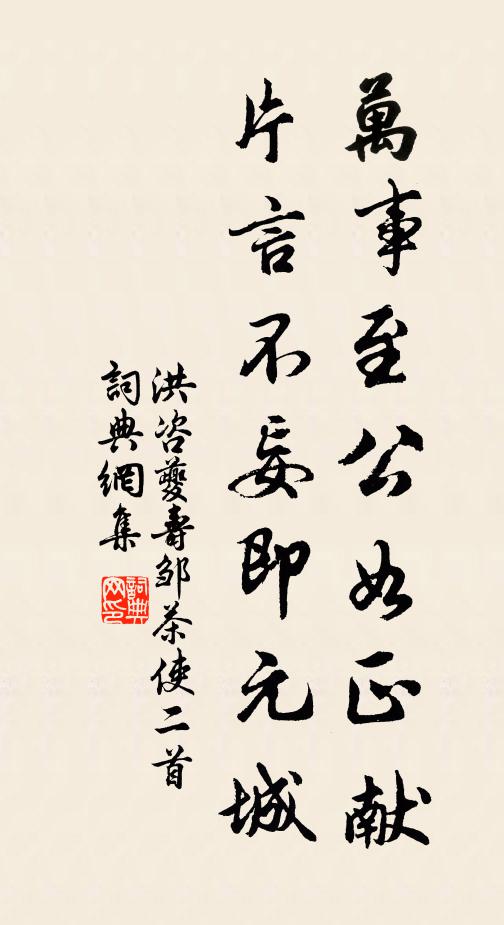 萬事至公如正献
片言不妄即元城
洪咨夔壽邹茶使二首
詞典網集